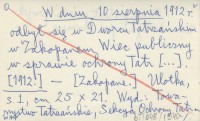 W dniu 10 sierpnia 1912 r.
odbył się w Dworcu Tatrzańskim
w Zakopanem Wiec publiczny
w sprawie ochrony Tatr [...].
[1912.] — [Zakopane.] Ulotka,
s. 1, cm 25 x 21. Wyd.: Towa-
rzystwo Tatrzańskie, Sekcja Ochrony Tatr